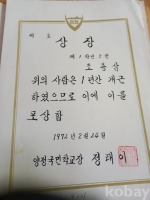 제 호
상 장
제 1 학년 2 반
위의 사람은 1년간 개근
하였으므로 이에 이를
포상함
1972년 2월 24일
양정국민학교장 정태이
kobay